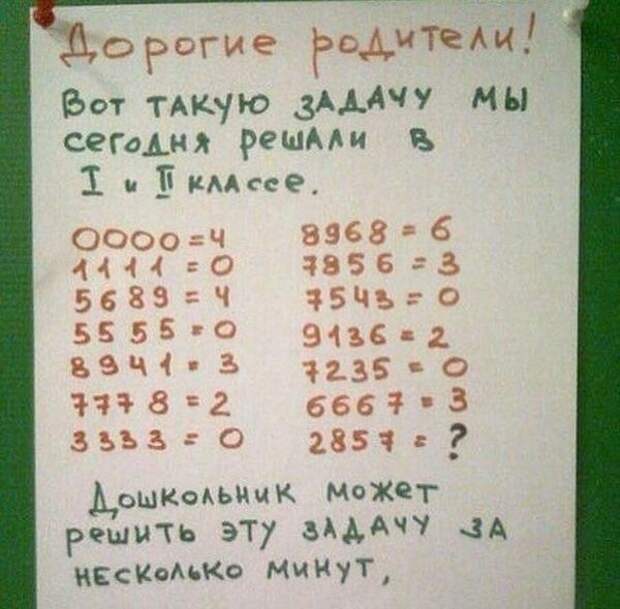 Дорогие родители!
Вот такую задачу мы
сегодня решали в
I и II классе.
0000 = 4
1111 = 0
5689 = 4
5555 = 0
8941 = 3
7778 = 2
3333 = 0
8968 = 6
7856 = 3
7543 = 0
9136 = 2
7235 = 0
6667 = 3
2857 = ?
Дошкольник может
решить эту задачу за
несколько минут,